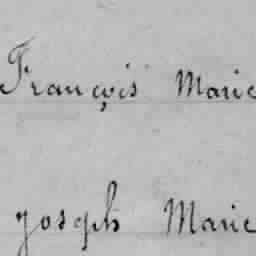 François Marie
Joseph Marie